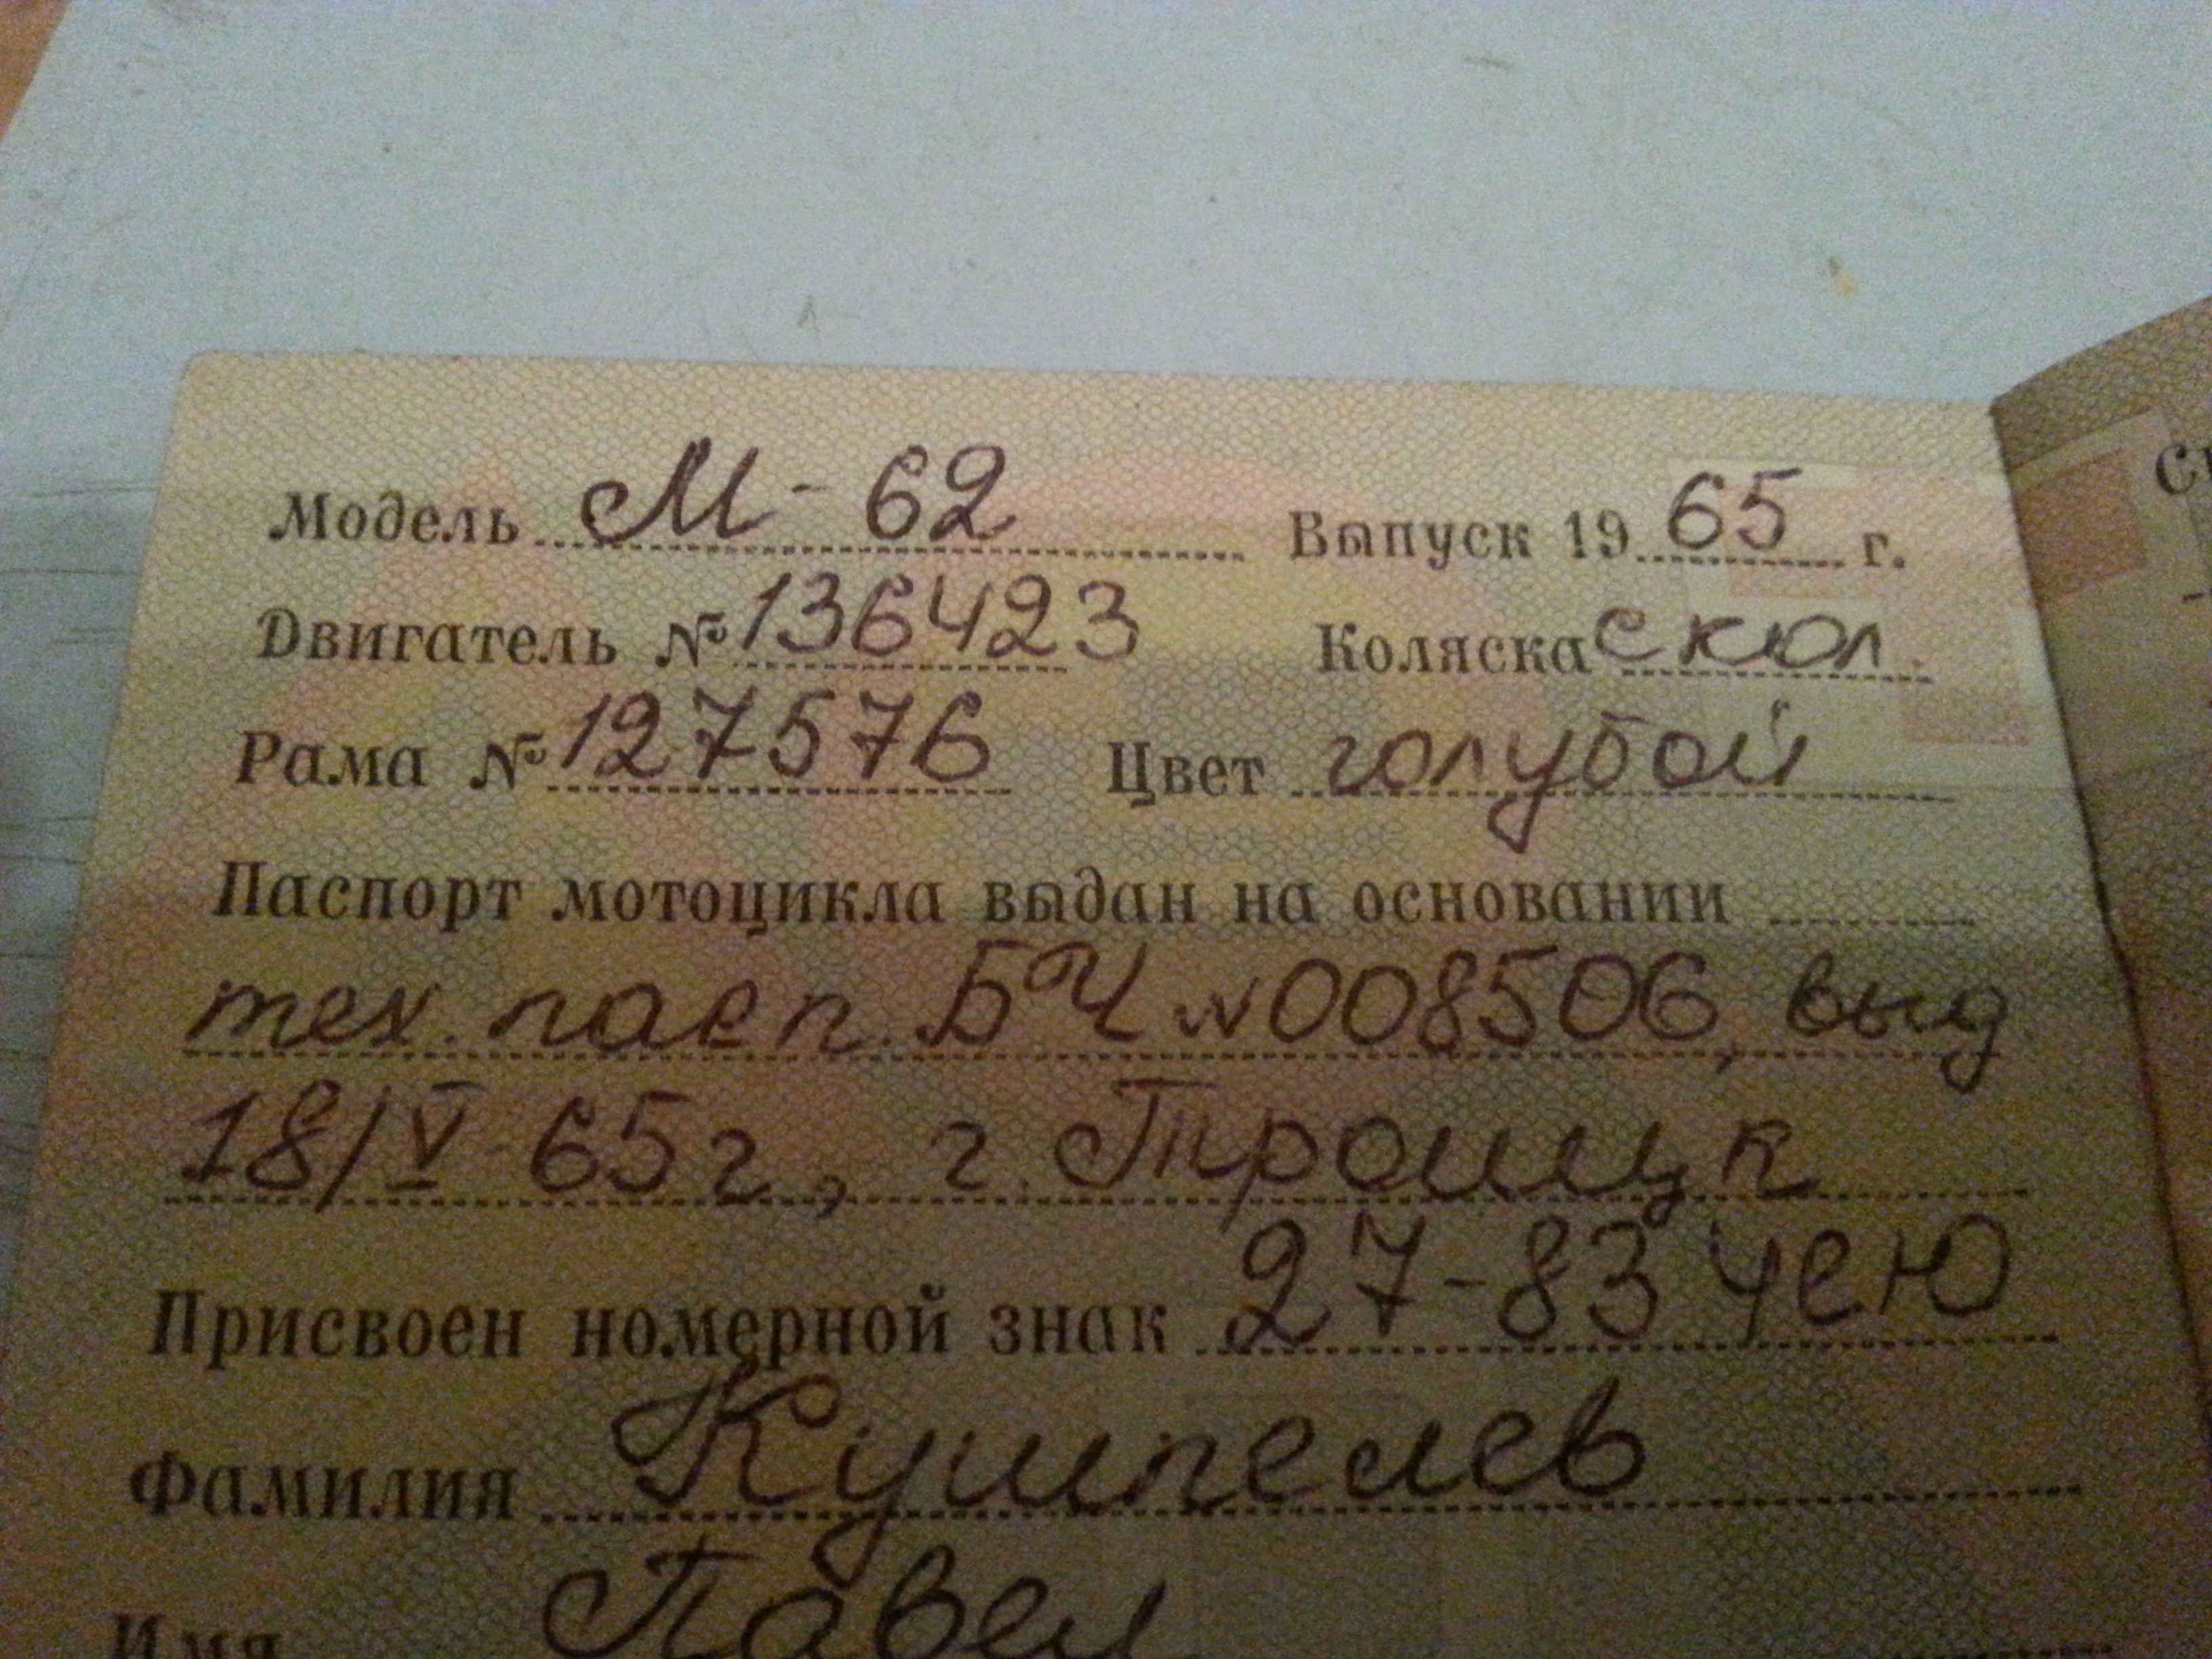 Модель М-62 Выпуск 1965 г.
Двигатель № 136423 Коляска с кол.
Рама № 127576 Цвет голубой
Паспорт мотоцикла выдан на основании
тех. пасп. БЧ № 008506, выд
18/V-65г, г. Троицк
Присвоен номерной знак 27-83 чею
Фамилия Кушпелев
Имя Павел